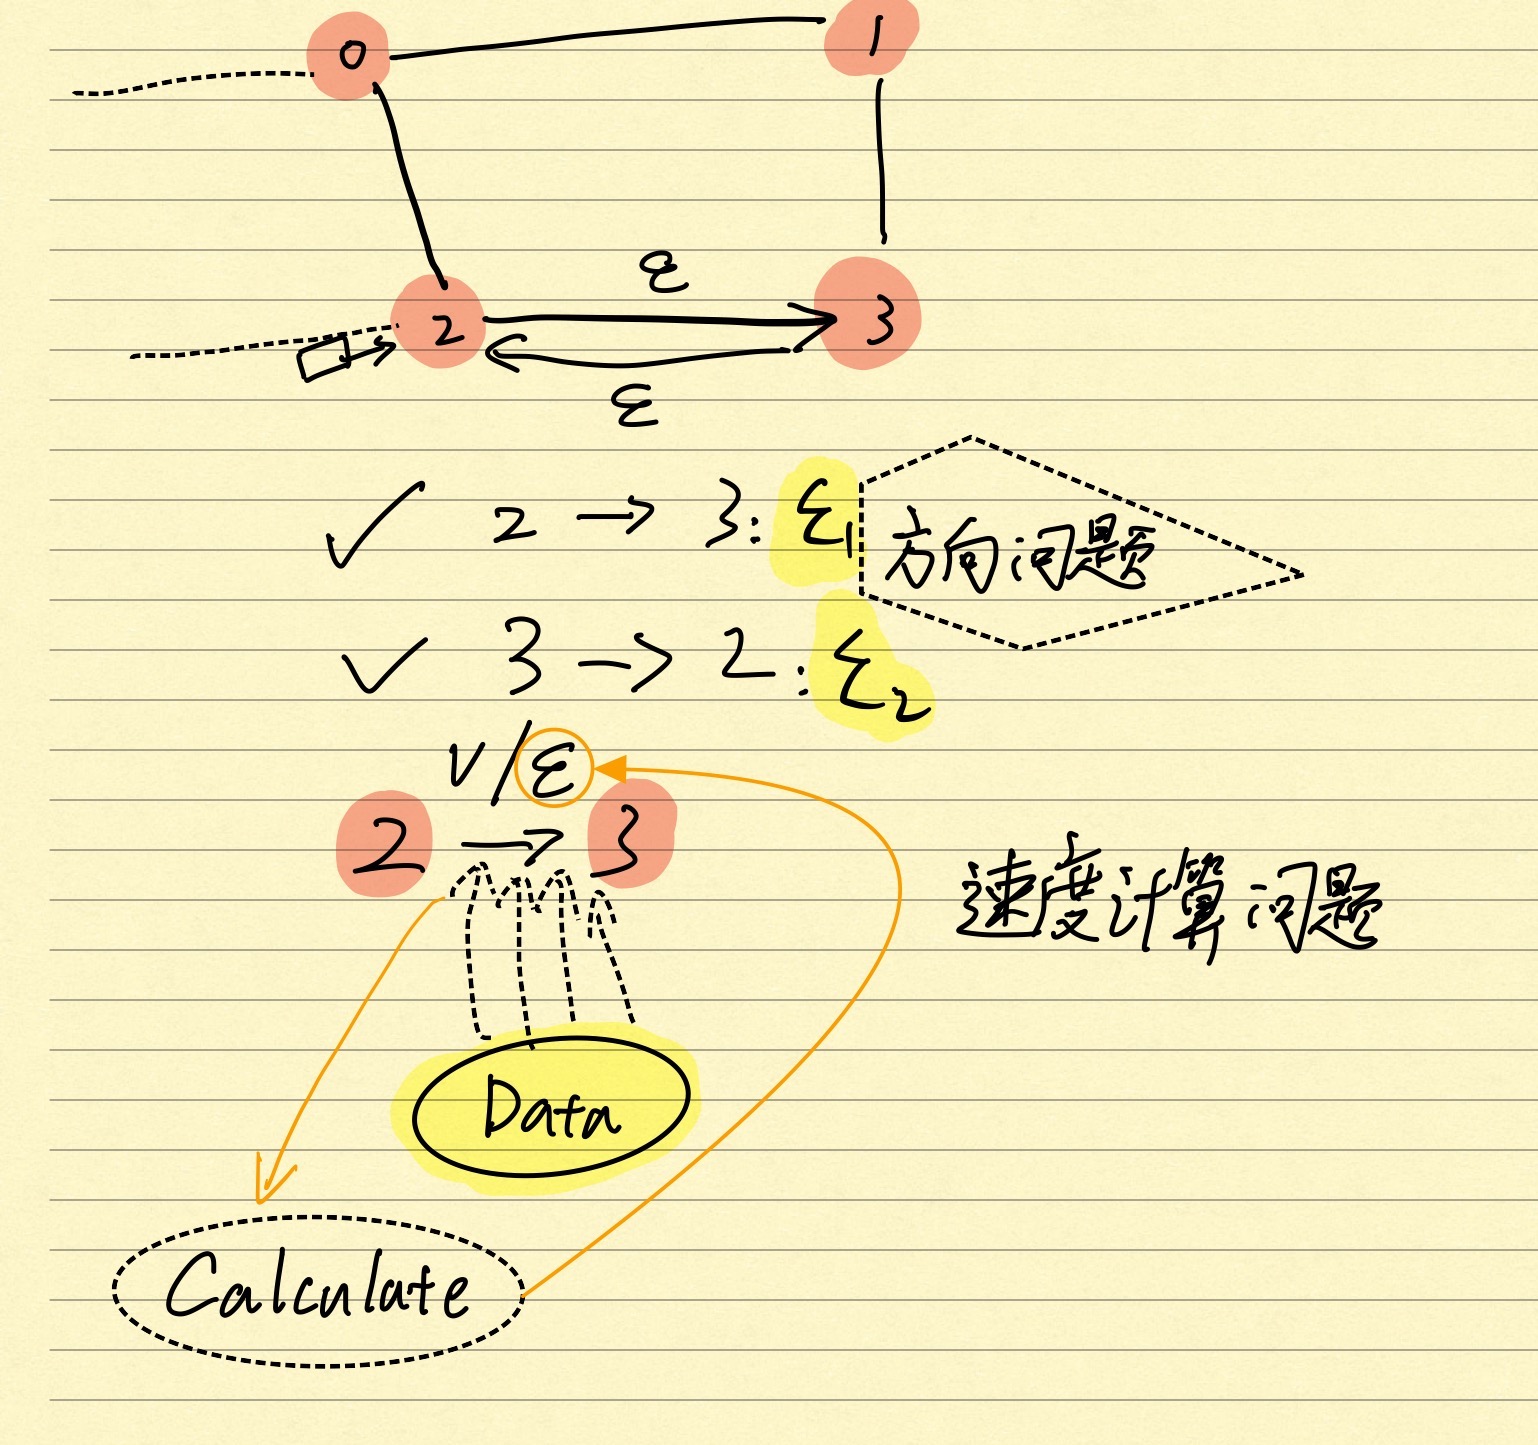 0
1
ε
2
3
ε
2 → 3: ε1
方向问题
3 → 2: ε2
V/ε
2 → 3
速度计算问题
Data
Calculate